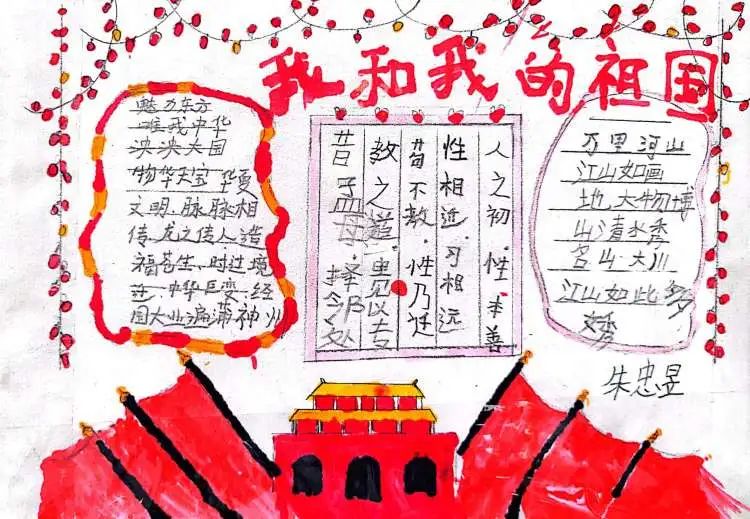 我和我的祖国
魅力东方
唯我中华
泱泱大国
物华天宝 华夏
文明.脉脉相
传.龙之传人造
福苍生.时过境
迁.中华巨变.经
国大业遍蒲神州
人之初.性.本善
性相近.习相远
苟不教.性乃迁
教之道 贵以专
昔孟母.择邻处
万里河山
江山如画
地大物博
山清水秀
名山大川
江山如此多
娇
朱忠昱